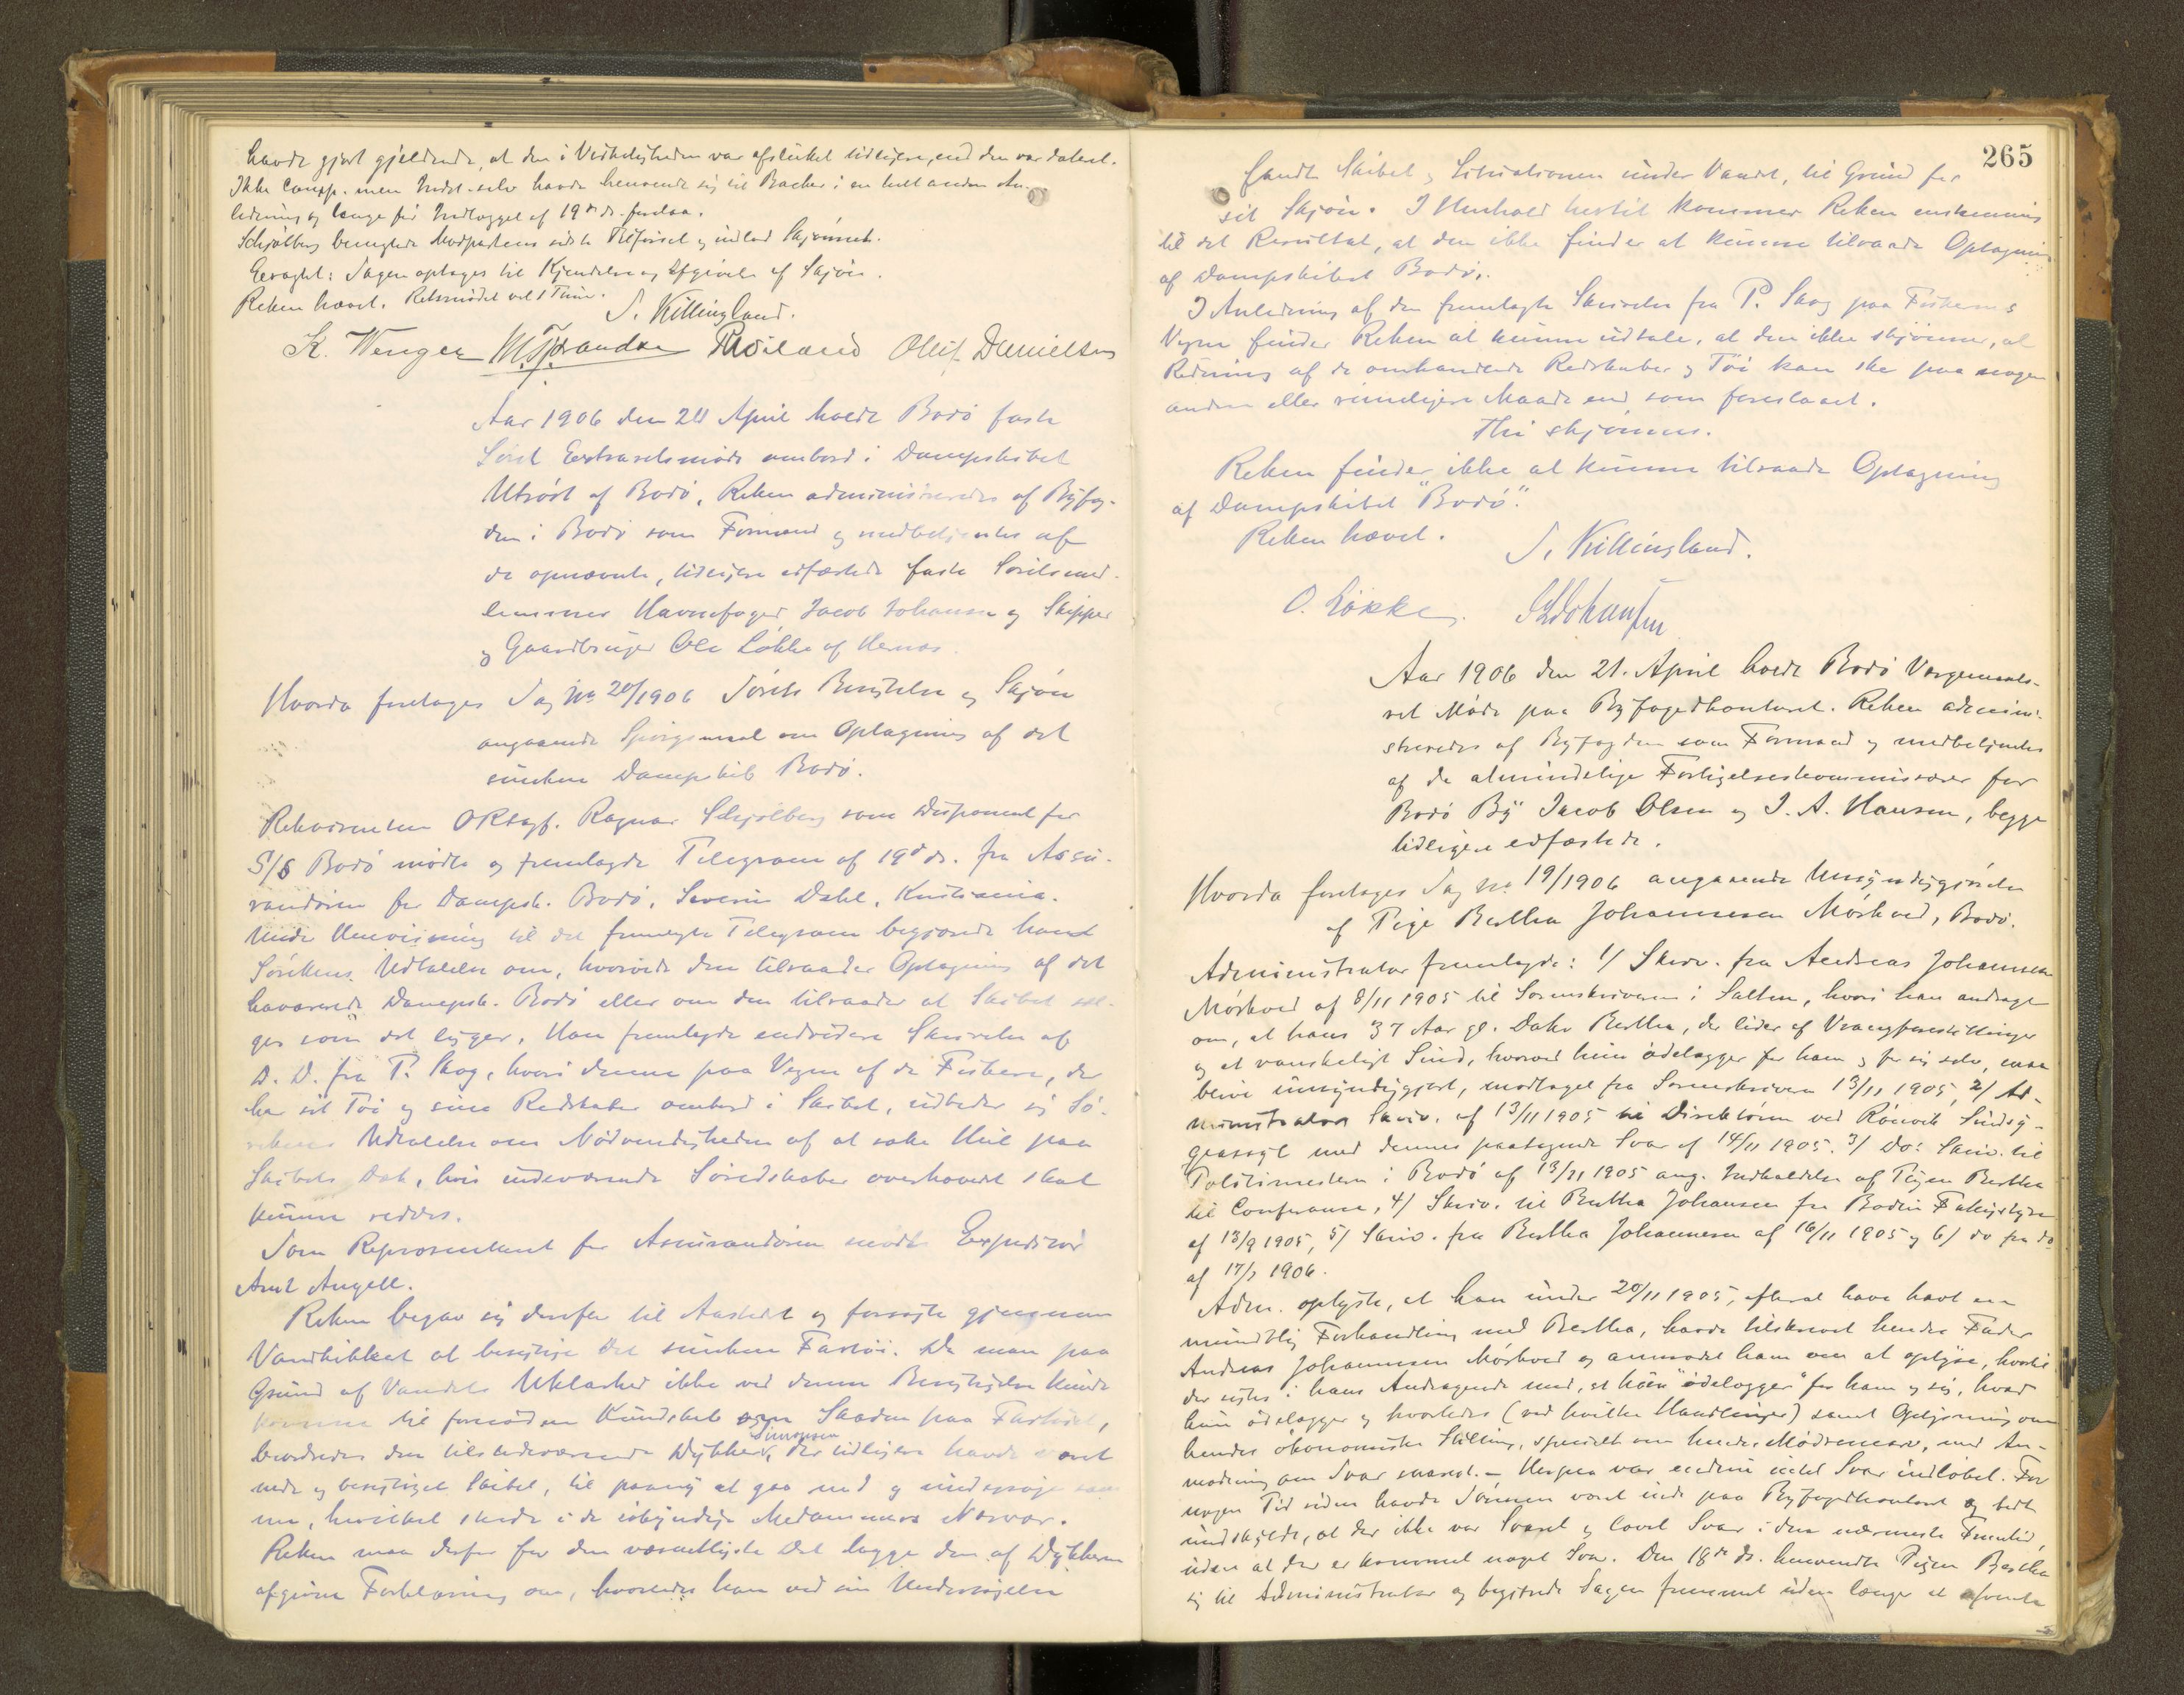 havde gjort gjeldende, at den i Virkeligheden var afsluttet tidligere, end den var dateret.
Ikke Comp. men Indst. selv havde henvendt sig til Backer i en helt anden An-
ledning og længe før Indlægget af 19de ds. forelaa.
Schjølberg benegtede Modpartens sidste Tilførsel og indlod Skjønnet.
Eragtet: Sagen optages til Kjendelse og Afgivelse af Skjøn.
Retten hævet. Retsmødet vel 1 Time.
S. Killingland.
K. Wenger M. Strandze Röiland Oluf Danielsen
Aar 1906 den 20 April holdt Bodø faste
Søret Extraretsmøde ombord i Dampskibet
Utrøst af Bodø. Retten administreredes af Byfog-
den i Bodø som Formand og medbetjentes af
de opnævnte, tidligere edfæstede faste Søretsmed-
lemmer Havnefoged Jacob Johansen og Skipper
og Gaardbruger Ole Løkke af Hernes.
Hvorda foretages Sag No 20/1906 Sørets Besigtelse og Skjøn
angaaende Spørgsmaal om Optagning af det
sunkne Dampskib Bodø.
Rekvirenten ORsagf. Ragnar Schjølberg som Disponent for
S/S Bodø mødte og fremlagde Telegram af 19d ds. fra Assu-
randøren for Dampsk. Bodø, Severin Dahl, Kristiania.
Under Henvisning til det fremlagte Telegram begjærede han
Sørettens Udtalelse om, hvorvidt den tilraader Optagning af det
havarerede Dampsk. Bodø eller om den tilraader at Skibet sæl-
ges som det ligger. Han fremlagde endvidere Skrivelse af
D. D. fra P. Skog, hvori denne paa Vegne af de Fiskere, der
har sit Töi og sine Redskaber ombord i Skibet, udbeder sig Sö-
rettens Udtalelse om Nødvendigheden af at sætte Hul paa
Skibets Dæk, hvis indeværende Söredskaber overhovedet skal
kunne reddes.
Som Repræsentant for Assurandøren mødte Expeditör
Arnt Angell.
Retten begav sig derefter til Aastedet og forsøgte gjennem
Vandkikkert at besigtige det sunkne Fartøi. Da man paa
Grund af Vandets Uklarhed ikke ved denne Besigtigelse kunde
komme til fornøden Kundskab om Skaden paa Fartøiet,
beordredes den tilstedeværende Dykker Simonsen, der tidligere havde været
nede og besigtiget Skibet, til paany at gaa ned og undersøge sam-
me, hvilket skede i de søkyndige Meddommeres Nærvær.
Retten maa derfor for den væsentligste Del lægge den af Dykkeren
afgivne Forklaring om, hvorledes han ved sin Undersøgelse
265
fandt Skibet og Situationen under Vandet, til Grund for
sit Skjøn. I Henhold hertil kommer Retten enstemmig
til det Resultat, at den ikke finder at kunne tilraade Optagning
af Dampskibet Bodø.
I Anledning af den fremlagte Skrivelse fra P. Skog paa Fiskernes
Vegne finder Retten at kunne udtale, at den ikke skjønner, at
Redning af de omhandlede Redskaber og Töi kan ske paa nogen
anden eller rimeligere Maade end som foreslaaet.
Thi skjønnes.
Retten finder ikke at kunne tilraade Optagning
af Dampskibet "Bodø".
Retten hævet.
S. Killingland.
O. Løkke. Johansen
Aar 1906 den 21. April holdt Bodø Vergemaals-
ret Møde paa Byfogedkontoret. Retten admini-
streredes af Byfogden som Formand og medbetjentes
af de almindelige Forligelseskommissærer for
Bodø By Jacob Olsen og J. A. Hansen, begge
tidligere edfæstede.
Hvorda foretages Sag No 19/1906 angaaende Umyndiggjørelse
af Pige Bertha Johannesen Mørkved, Bodø.
Administrator fremlagde: 1/ Skriv. fra Andreas Johannesen
Mørkved af 8/11 1905 til Sorenskriveren i Salten, hvori han andrager
om, at hans 37 Aar gl. Datter Bertha, der lider af Vrangforestillinger
og et vanskeligt Sind, hvorved hun ødelægger for ham og for sig selv, maa
blive umyndiggjort, modtaget fra Sorenskriveren 13/11 1905, 2/ Ad-
ministrators Skriv. af 13/11 1905 til Direktøren ved Rønvik Sindsy-
geasyl med dennes paategnede Svar af 14/11 1905. 3/ Do: Skriv. til
Politimesteren i Bodø af 13/11 1905 ang. Indkaldelse af Pigen Bertha
til Conference, 4/ Skriv. til Bertha Johansen fra Bodin Fattigstyre
af 13/9 1905, 5/ Skriv. fra Bertha Johannesen af 16/11 1905 og 6/ do fra do
af 17/3 1906.
Adm. oplyste, at han under 20/11 1905, efterat have havt en
mundtlig Forhandling med Bertha, havde tilskrevet hendes Fader
Andreas Johannesen Mørkved og anmodet ham om at oplyse, hvortil
der sigtes i hans Andragende med, at hun "ødelægger" for ham og sig, hvad
hun ødelægger og hvorledes (ved hvilke Handlinger) samt Oplysning om
hendes økonomiske Stilling, specielt om hendes Mødrenearv, med An-
modning om Svar snarest. - Herpaa var endnu intet Svar indløbet. For
nogen Tid siden havde Sønnen været inde paa Byfogedkontoret og bedt
undskylde, at der ikke var svaret og lovet Svar i den nærmeste Fremtid,
uden at der er kommet noget Svar. Den 18de ds. henvendte Pigen Bertha
sig til Administrator og begjærede Sagen fremmet uden længer at afvente